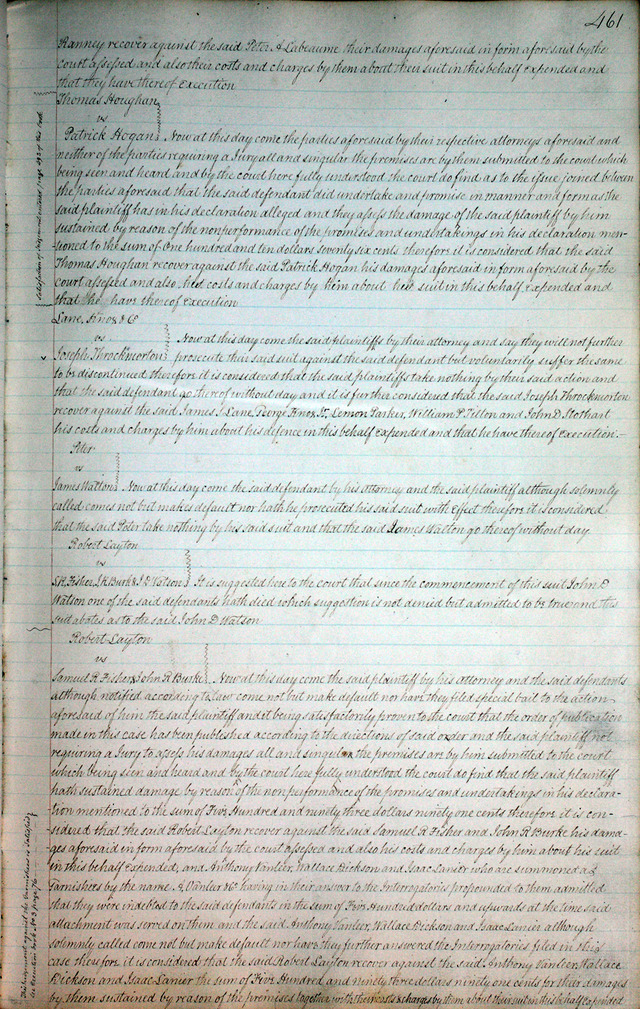 461
Ranney recover against the said Peter A Labeaume their damages aforesaid in form aforesaid by the
court assessed and also their costs and charges by them about their suit in this behalf expended and
that they have thereof execution
Thomas Houghan
vs
Patrick Hogan Now at this day come the parties aforesaid by their respective attorneys aforesaid and
neither of the parties requiring a Jury all and singular the premises are by them submitted to the court which
being seen and heard and by the court here fully understood the court do find as to the issue joined between
the parties aforesaid that the said defendant did undertake and promise in manner and form as the
said plaintiff has in his declaration alleged and they assess the damage of the said plaintiff by him
sustained by reason of the nonperformance of the promises and undertakings in his declaration men-
tioned to the sum of One hundred and ten dollars seventy six cents therefore it is considered that the said
Thomas Houghan recover against the said Patrick Hogan his damages aforesaid in form aforesaid by the
court assessed and also costs and charges by him about suit in this behalf expended and
that he have thereof execution
Lane, Knox & Co
vs Now at this day come the said plaintiffs by their attorney and say they will not further
Joseph Throckmorton prosecute their said suit against the said defendant but voluntarily suffer the same
to be discontinued therefore it is considered that the said plaintiffs take nothing by their said action and
that the said defendant go thereof without day and it is further considered that the said Joseph Throckmorton
recover against the said James S Lane, George Knox Lemon Parker, William P. Tillon and John D. Stothart
his costs and charges by him about his defence in this behalf expended and that he have thereof execution.–
Peter
vs
James Walton Now at this day come the said defendant by his attorney and the said plaintiff although solemnly
called comes not but makes default nor hath he prosecuted his said suit with effect therefore it is considered
that the said Peter take nothing by his said suit and that the said James Walton go thereof without day
Robert Layton
vs
S.R. Fisher, J.R. Burk & J.D. Watson It is suggested here to the court that since the commencement of this suit John D
Watson one of the said defendants hath died which suggestion is not denied but admitted to be true and this
suit abates as to the said John D Watson
Robert Layton
vs
Samuel R. Fisher & John R Burke Now at this day come the said plaintiff by his attorney and the said defendants
although notified according to law come not but make default nor have they filed special bail to the action
aforesaid of him the said plaintiff and it being satisfactorily proven to the court that the order of publication
made in this case has been published according to the directions of said order and the said plaintiff not
requiring a Jury to assess his damages all and singular the premises are by him submitted to the court
which being seen and heard and by the court here fully understood the court do find that the said plaintiff
hath sustained damage by reason of the nonperformance of the promises and undertakings in his declara-
tion mentioned to the sum of Five Hundred and ninety three dollars ninety one cents therefore it is con-
sidered that the said Robert Layton recover against the said Samuel R Fisher and John R Burke his dama-
ges aforesaid in form aforesaid by the court assessed and also his costs and charges by him about his suit
in this behalf expended, and Anthony Vanleer, Wallace Dickson and Isaac Lanier who are summoned as
Garnishees by the name A Vanleer &c having in their answer to the Interrogatories propounded to them admitted
that they were indebted to the said defendants in the sum of Five Hundred dollars and upwards at the time said
attachment was served on them and the said Anthony Vanleer, Wallace Dickson and Isaac Lanier although
solemnly called come not but make default nor have they further answered the Interrogatories filed in this
case therefore it is considered that the said Robert Layton recover against the said Anthony Vanleer, Wallace
Dickson and Isaac Lanier the sum of Five Hundred and ninety three dollars ninety one cents for their damages
by them sustained by reason of the premises together with their costs & charges by them about their suit in this behalf expended